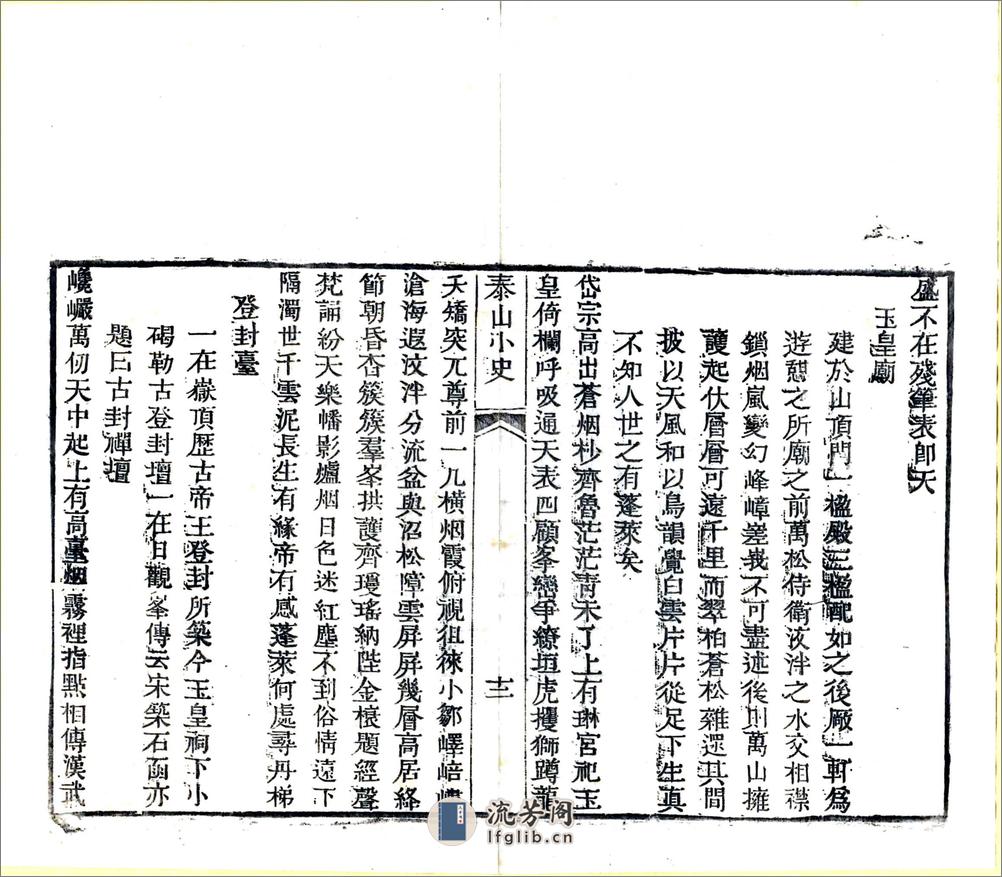 盛不在殘筆表卽天
玉皇廟
建於山頂門一楹殿三楹配如之後厰一軒爲
遊憩之所廟之前萬松侍衛液泮之水交相襟
鎖烟嵐變幻峰嶂嵳峩不可盡述後則萬山擁
護起伏層層可遠千里而翠柏蒼松雜還其間
披以天風和以鳥韻覺白雲片片從足下生眞
不知人世之有蓬萊矣
岱宗高出蒼烟杪齊魯茫茫青未了上有琳宮祀玉
皇倚欄呼吸通天表四顧峯巒爭繚垣虎攫獅蹲龍
泰山小史
十二
夭矯突兀尊前一九橫烟霞俯視徂徠小鄒嶧嵪
滄海遐汶泮分流盆與沼松障雲屏屏幾層高居絳
節朝昏杳簇簇羣峯拱護齊瓊瑤納陛金榱題經聲
梵誦紛天樂幡影爐烟日色迷紅塵不到俗情遠下
隔濁世千雲泥長生有緣帝有感蓬萊何處尋丹梯
登封臺
一在嶽頂歷古帝王登封所築今玉皇祠下小
碣勒古登封壇一在日觀峯傳云宋築石函亦
題曰古封禪壇
巉巖萬仞天中起上有高臺烟霧裡指點相傳漢武
流芳阁
lfglib.cn